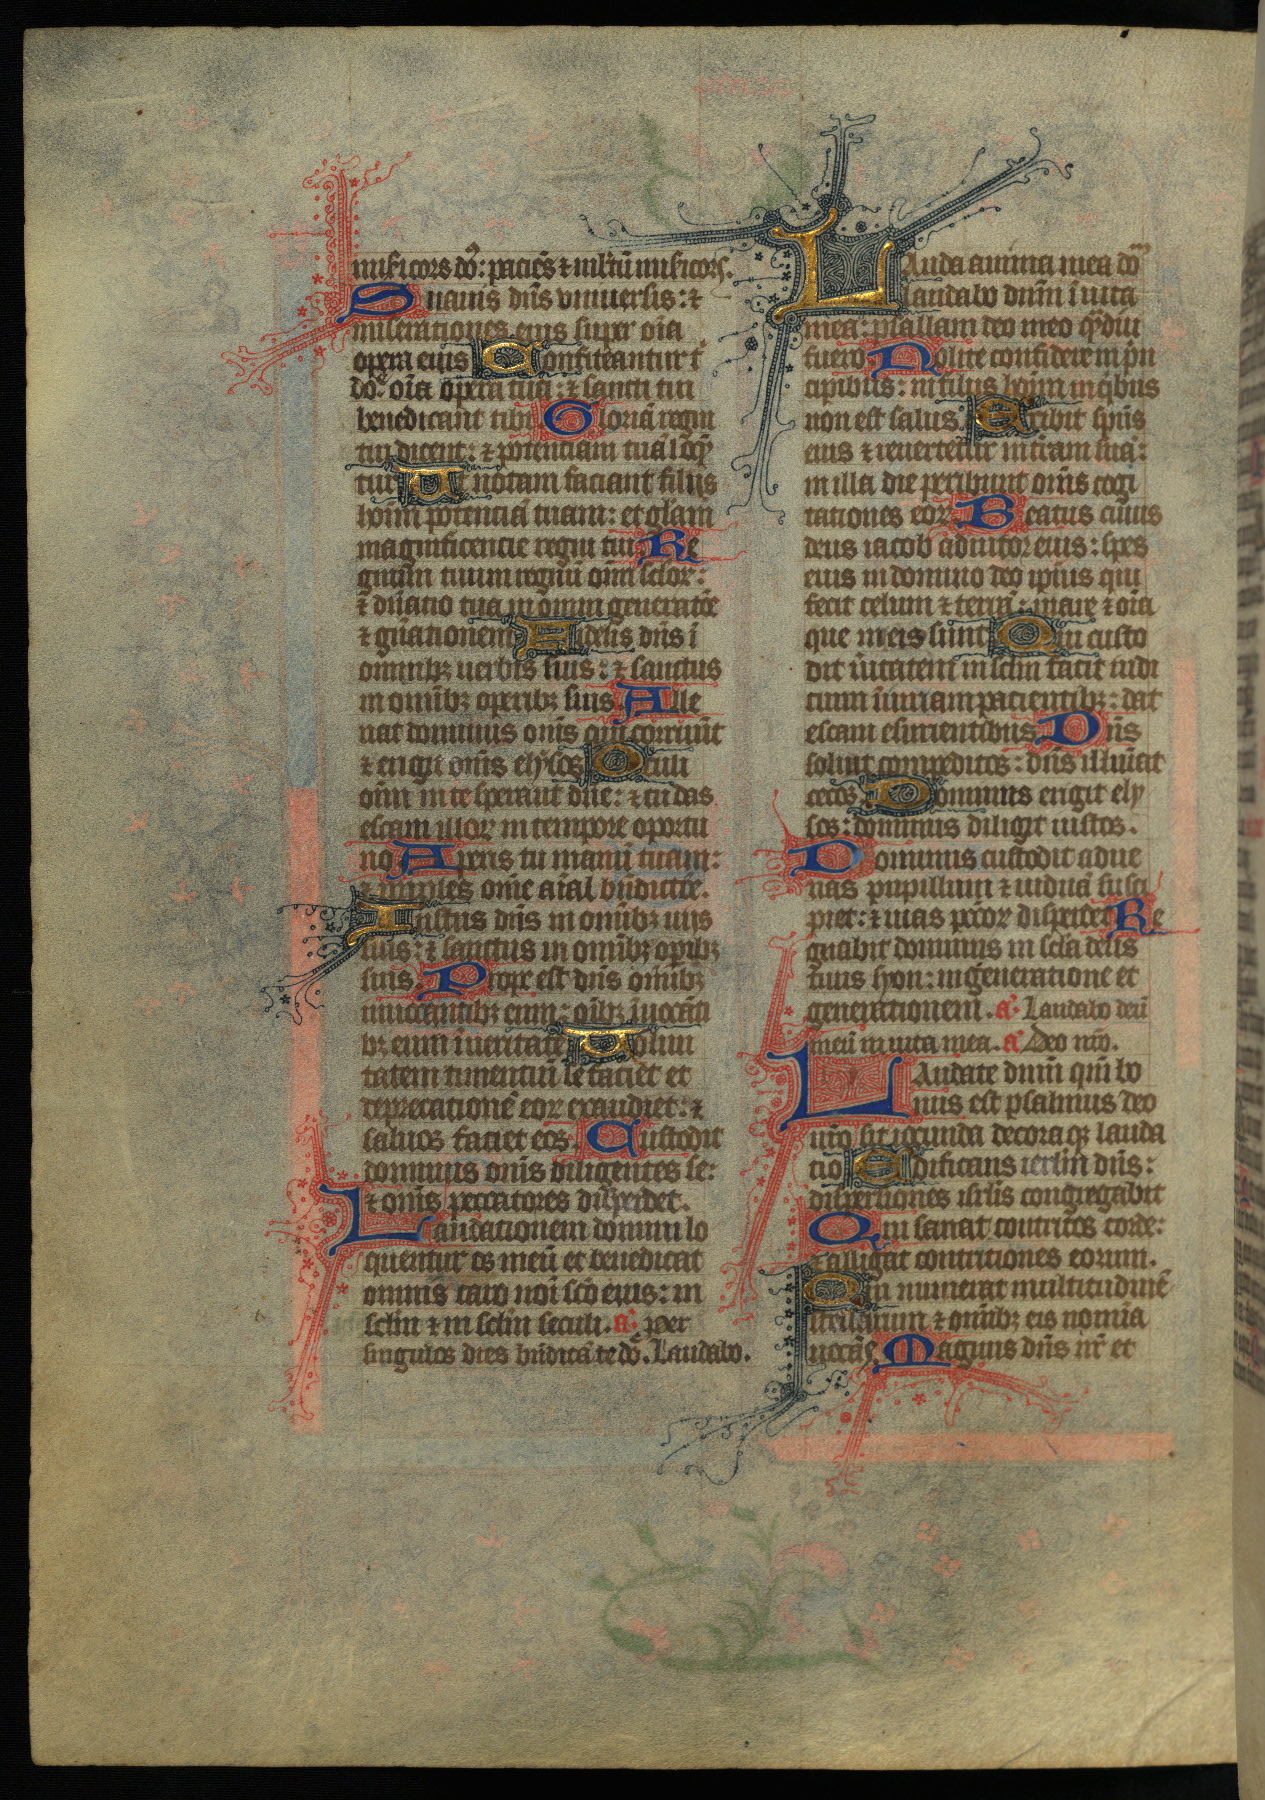 misericors dō: paciēs ⁊ mltū misericors.
Suauis dn̄s vniuersis: ⁊
miserationes eius super oīa
opera eius Confiteantur t̄
dō. oīa opera tua: ⁊ sancti tui
benedicant tibi Gloriā regni
tui dicent: ⁊ potentiam tuā loq̄
tur Ut notam faciant filiis
hoīm potenciā tuam: et glām
magnificencie regni tui Re
gnum tuum regnū oīm sclor:
⁊ dn̄atio tua in omni generatōe
⁊ gn̄ationem Fidelis dn̄s ī
omnibꝫ uerbis suis: ⁊ sanctus
in omībꝫ operibꝫ suis Alle
uat dominus omīs qui corruūt
⁊ erigit omīs elysos Oculi
oīm in te sperant dn̄e: ⁊ tu das
escam illor in tempore oportu
no Aperis tu manū tuam:
⁊ imples om̄e aīal bn̄dictōe.
Iustus dn̄s in omībꝫ uiis
suis: ⁊ sanctus in omībꝫ opibꝫ
suis. Prope est dn̄s omībꝫ
inuocantibꝫ eum: oībꝫ īuocāti
bꝫ eum īueritate Volun
tatem timentiū se faciet et
deprecationē eor exaudiet: ⁊
saluos faciet eos. Custodit
dominus omīs diligentes se:
⁊ omīs peccatores disperdet.
Laudationem domini lo
quentur os meū et benedicat
omnis caro noī scō eius: in
sclm ⁊ in sclm seculi. a. per
singulos dies bn̄dicā te dō. Laudabo.
Lauda anima mea dōm
laudabo dn̄m ī uita
mea: psallam deo meo q̄diu
fuero. Nolite confidere in pn̄
cipibus: in filiis hoīm in qibus
non est salus. Exibit spūs
eius ⁊ reuertetur in tr̄am suā:
in illa die peribunt om̄s cogi
tationes eor Beatus cuius
deus iacob adiutor eius: spes
eius in domino deo ipsius qui
fecit celum ⁊ terrā: mare ⁊ oīa
que in eis sunt Qui custo
dit ūitatem in sclm facit iudi
cium īiuriam pacientibꝫ: dat
escam esurientibus Dn̄s
soluit compeditos: dn̄s illuīat
cecos. Dominus erigit ely
sos: dominus diligit iustos.
Dominus custodit adue
nas pupillum ⁊ uiduā susci
piet: ⁊ uias pccōr disperdet Re
gnabit dominus in scla deus
tuus syon: in generatione et
generationem. a. Laudabo deū
meū in uita mea. a Deo nrō.
Laudate dn̄m qm̄ bo
nus est psalmus deo
nrō sit iocunda decora qꝫ lauda
tio Edificans ierlm dn̄s:
dispersiones isrlis congregabit
Qui sanat contritos corde:
⁊ alligat contritiones eorum.
Qui numerat multitudinē
stellarum ⁊ omībꝫ eis nomīa
uocās. Magnus dn̄s nr̄ et